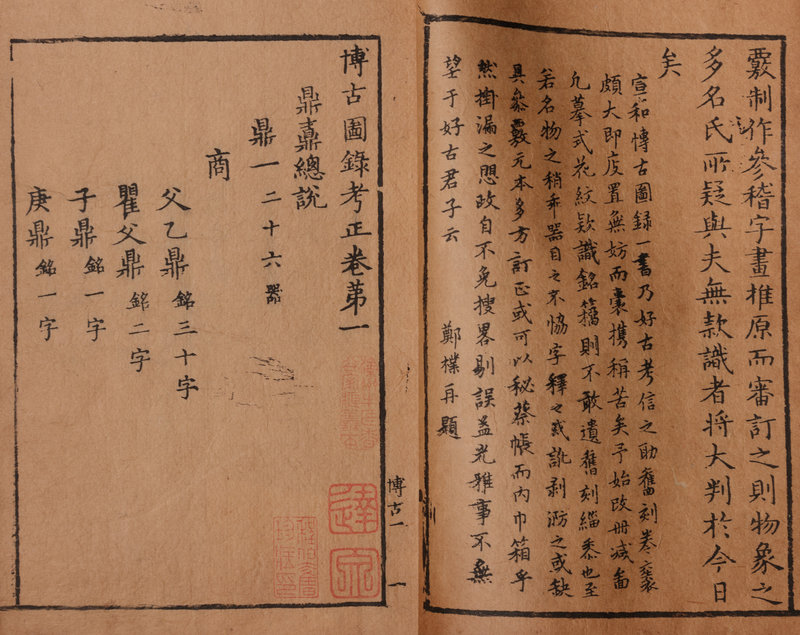 覈制作參稽字畫推原而審訂之則物象之
多名氏所疑與夫無款識者將大判於今日
矣
宣和博古圖録一書乃好古考信之助舊刻卷袠
頗大即庋置無妨而囊携稱苦矣予始改册减啚
凡摹式花紋欵識銘籀則不敢遺舊刻緇黍也至
若名物之稍乖器目之不恊字釋之或訛剥泐之或缺
具叅覈元本多方訂正或可以秘蔡帳而内巾箱乎
然掛漏之愳政自不免搜畧剔誤益光雅事不無
望于好古君子云 鄭樸再題
博古圖錄考正卷苐一
鼎鼒總說
鼎一二十六器
商
父乙鼎銘三十字
瞿父鼎銘二字
子鼎銘一字
庚鼎銘一字
博古一 一